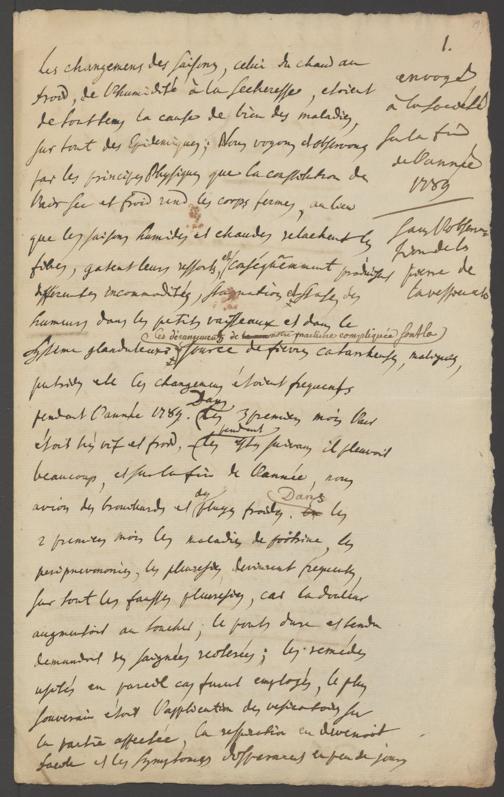 1.
Les changemens des saisons, celui du chaud au
froid, de l'humidité à la secheresse, etoient
de tout tems la cause de bien des maladies,
sur tout des Epidemiques; Nous voyons et observons
par les principes Physiques que la constitution de
l'air sec et froid rend les corps fermes, au lieu
que les saisons humides et chaudes relachent les
fibres, gatent leurs ressorts, et conséquemment produisent
differentes incommodités, stagnation et stase des
humeurs dans les petits vaisseaux et dans le
(ces dérangements de notre machine compliquée sont la)
systeme glanduleux source de fievres catarrheuses, malignes,
putrides etc les changemens étoient frequents
pendant l'année 1789. Dans les 3 premiers mois l'air
étoit très vif et froid, pendant les suivans il pleuvoit
beaucoup, et sur la fin de l'année, nous
avions des brouillards et des pluyes froides. Dans les
2 premiers mois les maladies de poitrine, les
peripneumonies, les pleuresies, devinrent frequentes,
sur tout les fausses pleuresies, car la douleur
augmentoit au toucher; le pouls dure et tendu
demandoit des saignées reiterées; les remédes
usités en pareil cas furent employés, le plus
souverain étoit l'application des vesicatoires sur
la partie affectée, la respiration en devenoit
facile et les symptomes disparurent en peu de jours
envoyé
à la société
sur la fin
de l'année
1789
sans l'observation
de la
pierre de
la vessie